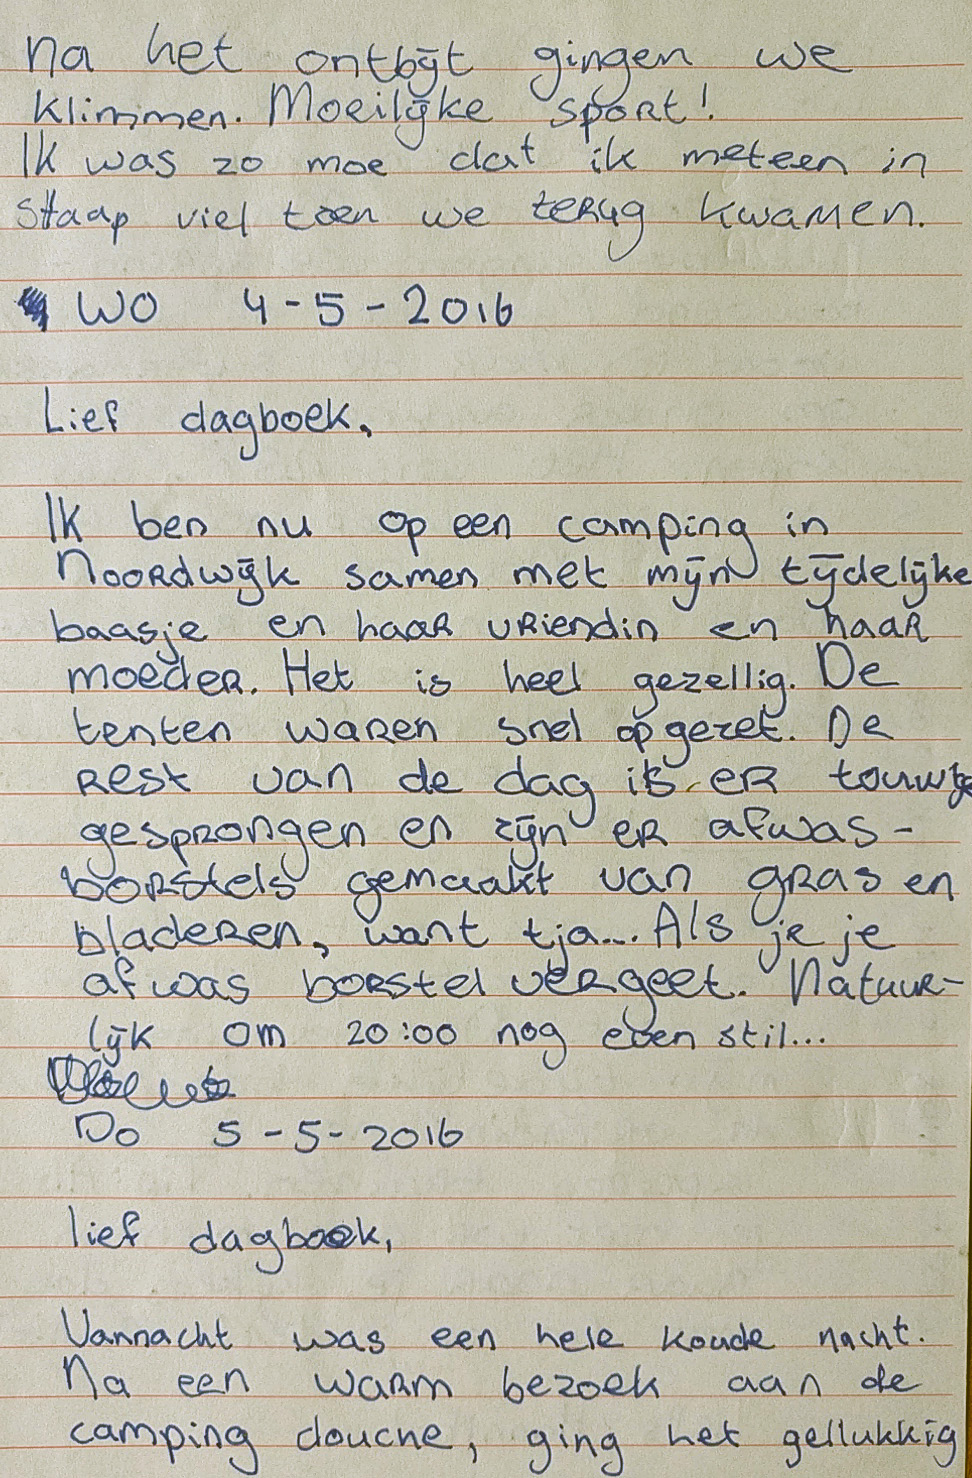 na het ontbijt gingen we
klimmen. Moeilijke sport!
Ik was zo moe dat ik meteen in
slaap viel toen we terug kwamen.
WO 4-5-2016
Lief dagboek,
Ik ben nu op een camping in
Noordwijk samen met mijn tijdelijke
baasje en haar vriendin en haar
moeder. Het is heel gezellig. De
tenten waren snel opgezet. De
rest van de dag is er touwtje
gesprongen en zijn er afwas-
borstels gemaakt van gras en
bladeren, want tja... Als je je
afwas borstel vergeet. Natuur-
lijk om 20:00 nog even stil...
Do 5-5-2016
lief dagboek,
Vannacht was een hele koude nacht.
Na een warm bezoek aan de
camping douche, ging het gellukkig